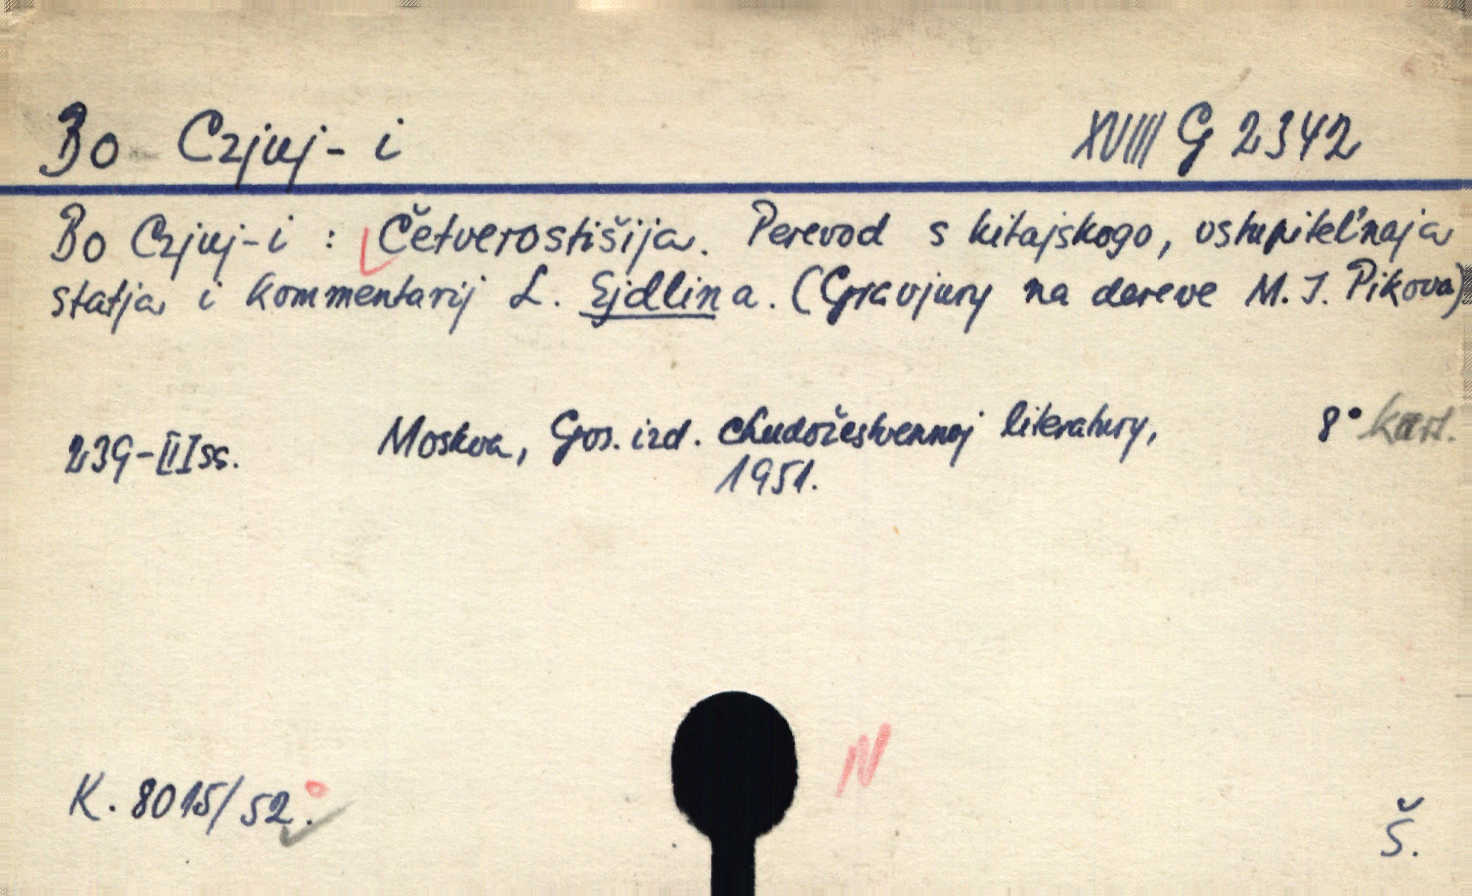 Bo Czjuj-i XVIII G 2342
Bo Czjuj-i : Četverostišija. Perevod s kitajskogo, vstupitel'naja
statja i kommentarij L. Ejdlina. (Gravjury na dereve M. I. Pikova)
239-[I]ss. Moskva, Gos. izd. chudožestvennoj literatury, 8° kart.
1951.
N
K. 8015/52.
Š.